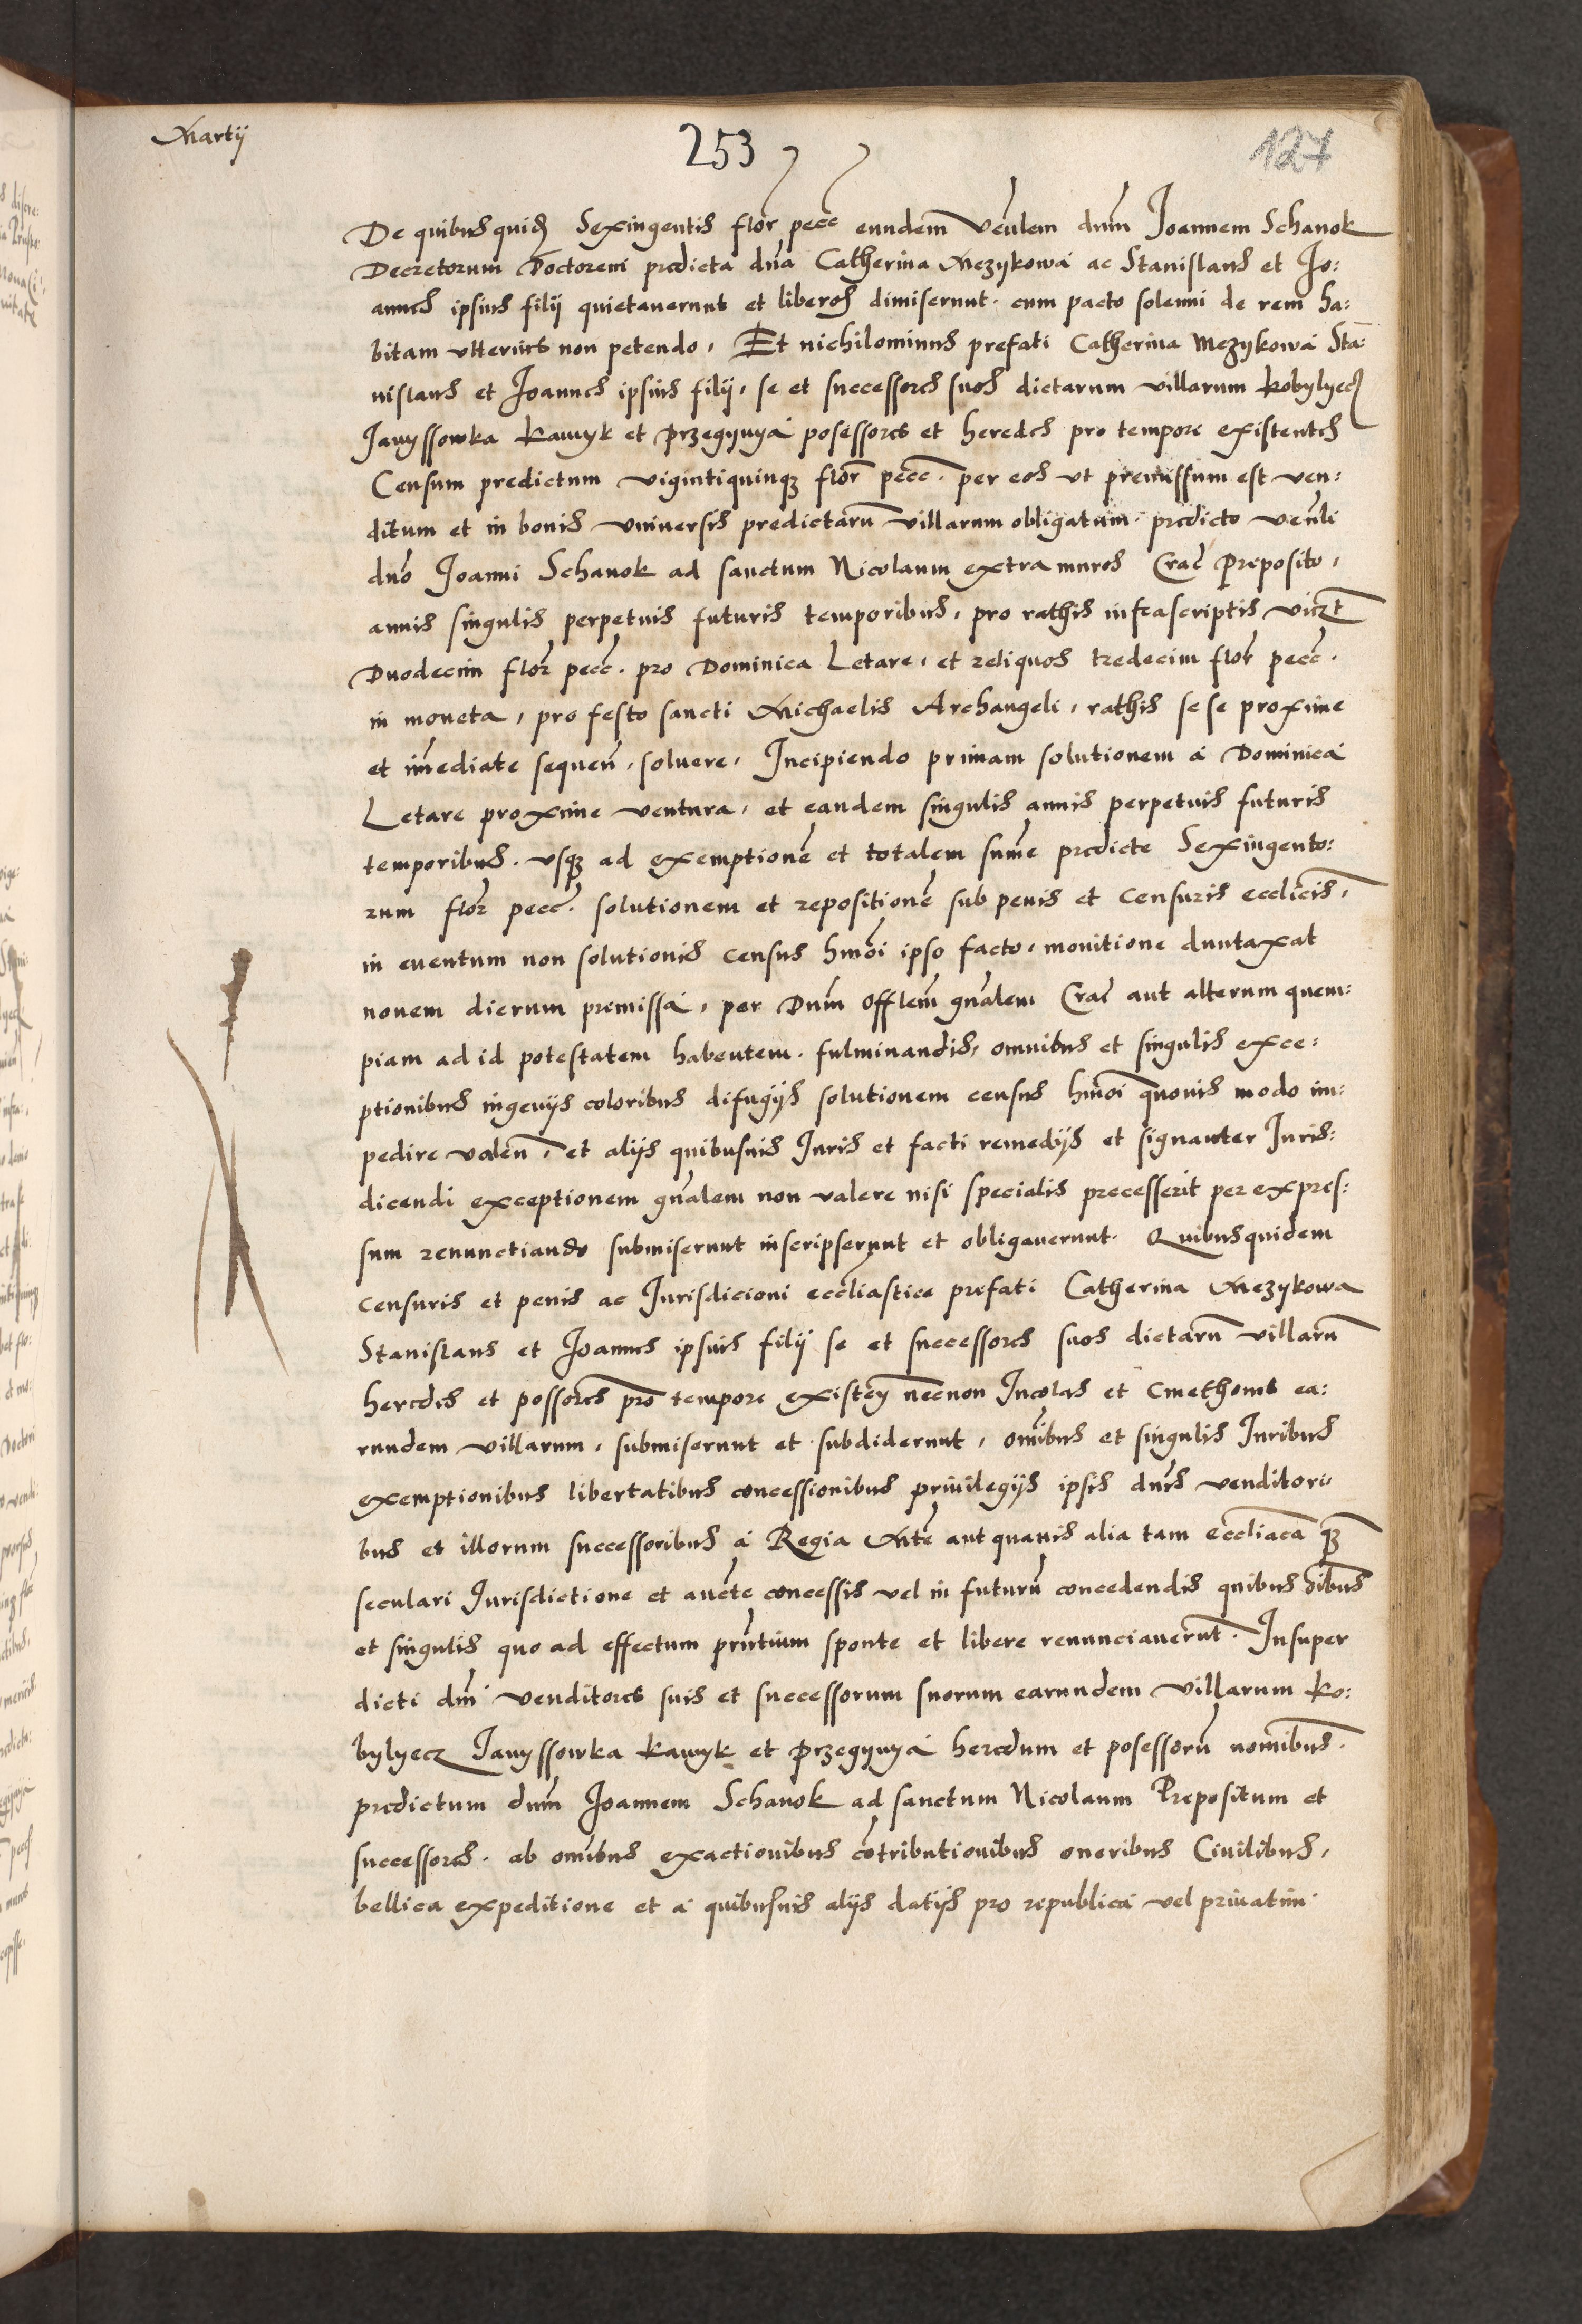 Martij
253
127
De quibusquid Sexingentis flor pecc eundem Venlem dnm Joannem Schanok
Decretorum Doctorem predicta dna Catherina Mezykowa ac Stanislaus et Jo:
annes ipsius filij quietaverunt et liberos dimiserunt. cum pacto solenni de rem ha:
bitam ulterius non petendo, Et nichilominus prefati Catherina Mezykowa Sta:
nislaus et Joannes ipsius filij, se et successores suos dictarum villarum Kobylyecz
Janyssowka Kawyk et Przegynya posessores et heredes pro tempore existentes
Censum predictum vigintiquinqz flor pecc. per eos ut premissum est ven:
ditum et in bonis universis predictarum villarum obligatum. predicto venli
dno Joanni Schanok ad sanctum Nicolaum extra muros Crac Preposito,
annis singulis perpetuis futuris temporibus, pro rathis infrascriptis viczt
Duodecim flor pecc. pro Dominica Letare, et reliquos tredecim flor pecc.
in moneta, pro festo sancti Michaelis Archangeli, rathis sese proxime
et imediate sequen, solvere, Incipiendo primam solutionem a Dominica
Letare proxime ventura, et eandem singulis annis perpetuis futuris
temporibus. usqz ad exemptione et totalem sume predicte Sexingento:
rum flor pecc. solutionem et repositione sub penis et censuris ecclicis,
in eventum non solutionis census hmoi ipso facto, monitione duntaxat
novem dierum premissa, per Dnm Offlem gnalem Crac aut alterum quem:
piam ad id potestatem habentem. fulminandis, omnibus et singulis exce:
ptionibus ingenijs coloribus difugijs solutionem census hmoi quovis modo im:
pedire valen, et alijs quibusvis Juris et facti remedijs et signanter Juris:
dicendi exceptionem gnalem non valere nisi specialis precesserit per expres:
sum renunctiando submiserunt inscripserunt et obligaverunt. Quibusquidem
censuris et penis ac Jurisdicioni eccliastice prefati Catherina Mezykowa
Stanislaus et Joannes ipsius filij se et successores suos dictaru villaru
heredes et possores pro tempore existen necnon Incolas et Cmethones ea:
rundem villarum, submiserunt et subdiderunt, omibus et singulis Juribus
exemptionibus libertatibus concessionibus privilegijs ipsis dnis venditori:
bus et illorum successoribus a Regia Mte aut quavis alia tam eccliaca qz
seculari Jurisdictione et aucte concessis vel in futuru concedendis quibus oibus
et singulis quo ad effectum prntium sponte et libere renunciaverunt. Insuper
dicti dni venditores suis et successorum suorum earundem villarum Ko:
bylyecz Janyssowka Kawyk et Przegynya heredum et posessoru nominibus.
predictum dnm Joannem Schanok ad sanctum Nicolaum Prepositum et
successores. ab omnibus exactionibus cotributionibus oneribus Civilibus,
bellica expeditione et a quibusvis alijs datijs pro republica vel privatim